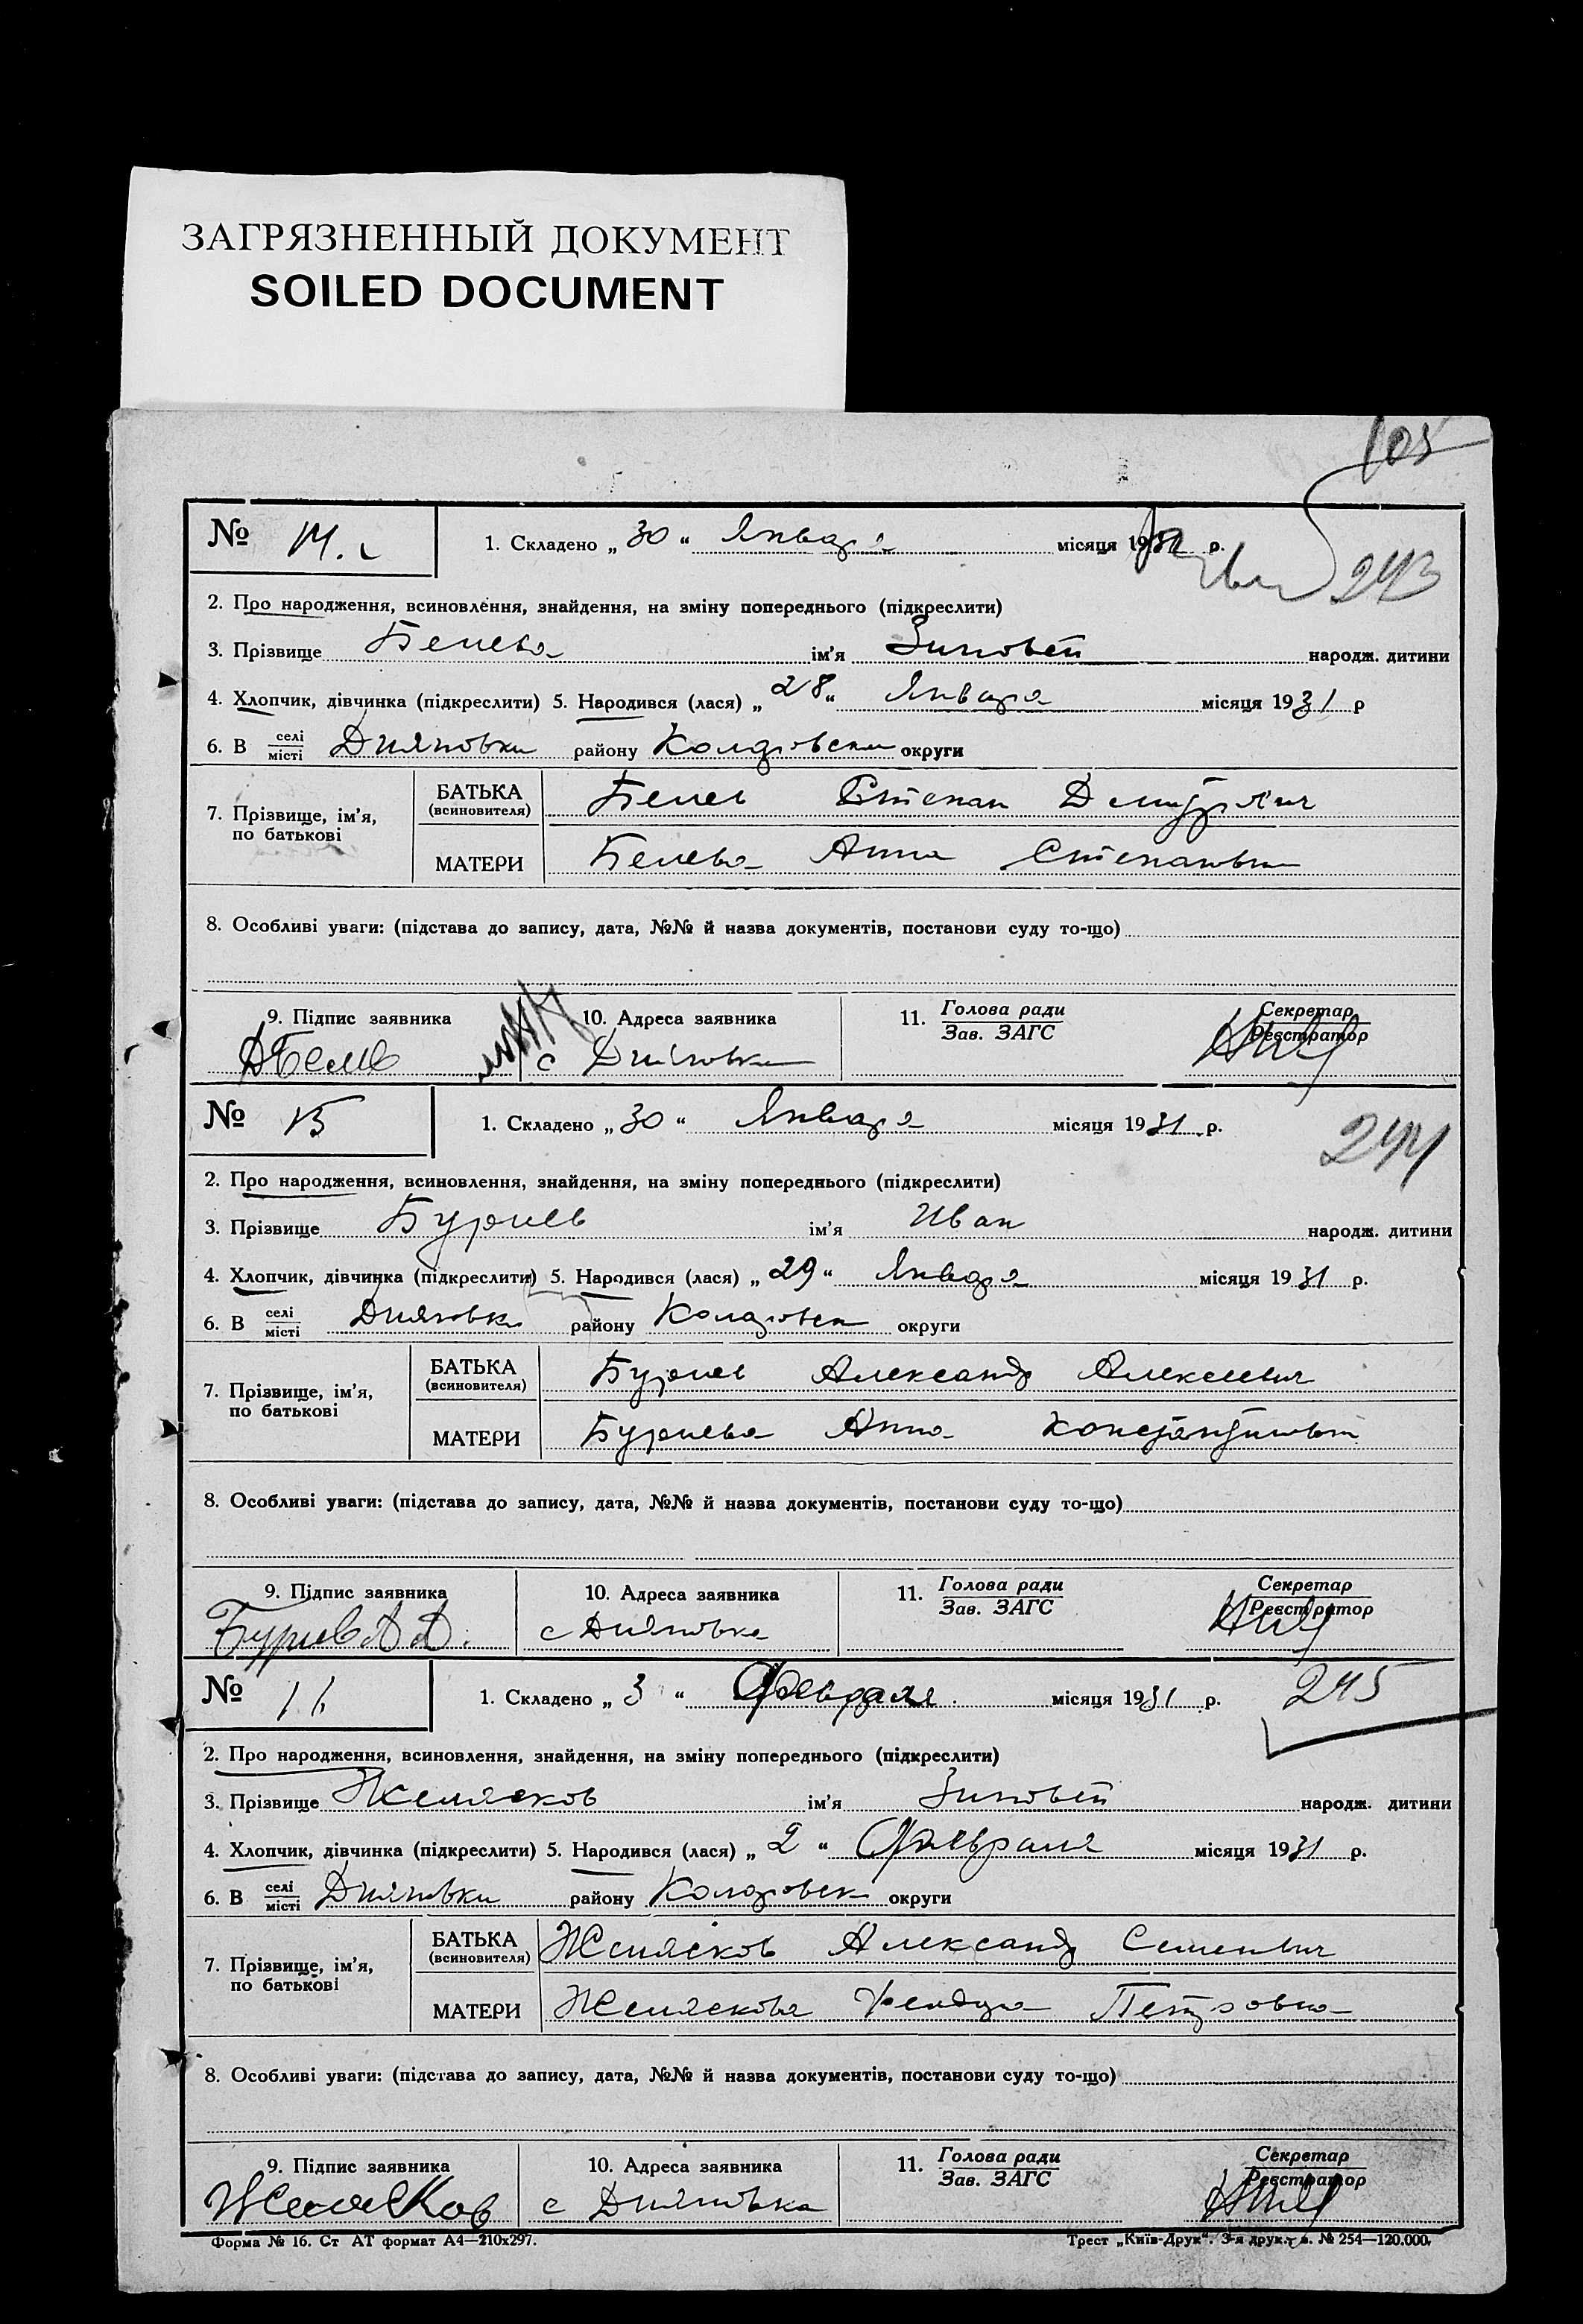 ЗАГРЯЗНЕННЫЙ ДОКУМЕНТ
SOILED DOCUMENT
105
№ 14. 1. Складено „ 30 “ Января місяця 1931 р.
243
2. Про народження, всиновлення, знайдення, на зміну попереднього (підкреслити)
3. Прізвище Белева ім’я Зиновей народж. дитини
4. Хлопчик, дівчинка (підкреслити) 5. Народився (лася) „ 28 “ Января місяця 1931 р
6. В селі/місті Дияновки району Коларовски округи
7. Прізвище, ім’я, по батькові БАТЬКА (всиновителя) Белев Степан
МАТЕРИ Белева Анна Степановна
8. Особливі уваги: (підстава до запису, дата, №№ й назва документів, постанови суду то-що)
9. Підпис заявника 10. Адреса заявника 11. Голова ради/Зав. ЗАГС Секретар/Реєстратор
ДБелев с Дияновка
№ 15 1. Складено „ 30 “ Января місяця 1931 р.
244
2. Про народження, всиновлення, знайдення, на зміну попереднього (підкреслити)
3. Прізвище Буриев ім’я Иван народж. дитини
4. Хлопчик, дівчинка (підкреслити) 5. Народився (лася) „ 29 “ Января місяця 1931 р.
6. В селі/місті Дияновки району Коларовск округи
7. Прізвище, ім’я, по батькові БАТЬКА (всиновителя) Буриев Александр Алексеевич
МАТЕРИ Буриева Анна Константиновна
8. Особливі уваги: (підстава до запису, дата, №№ й назва документів, постанови суду то-що)
9. Підпис заявника 10. Адреса заявника 11. Голова ради/Зав. ЗАГС Секретар/Реєстратор
Буриев А А. с Дияновка
№ 16 1. Складено „ 3 “ Февраля місяця 1931 р.
245
2. Про народження, всиновлення, знайдення, на зміну попереднього (підкреслити)
3. Прізвище Желясков ім’я Зиновей народж. дитини
4. Хлопчик, дівчинка (підкреслити) 5. Народився (лася) „ 2 “ Февраля місяця 1931 р.
6. В селі/місті Дияновки району Коларовск округи
7. Прізвище, ім’я, по батькові БАТЬКА (всиновителя) Желясков Александр Семенвич
МАТЕРИ Желяскова Петровна
8. Особливі уваги: (підстава до запису, дата, №№ й назва документів, постанови суду то-що)
9. Підпис заявника 10. Адреса заявника 11. Голова ради/Зав. ЗАГС Секретар/Реєстратор
Желясков с Дияновка
Форма № 16. Ст АТ формат А4—210х297. Трест „Київ-Друк“. 3-я друк. з. № 254—120.000.